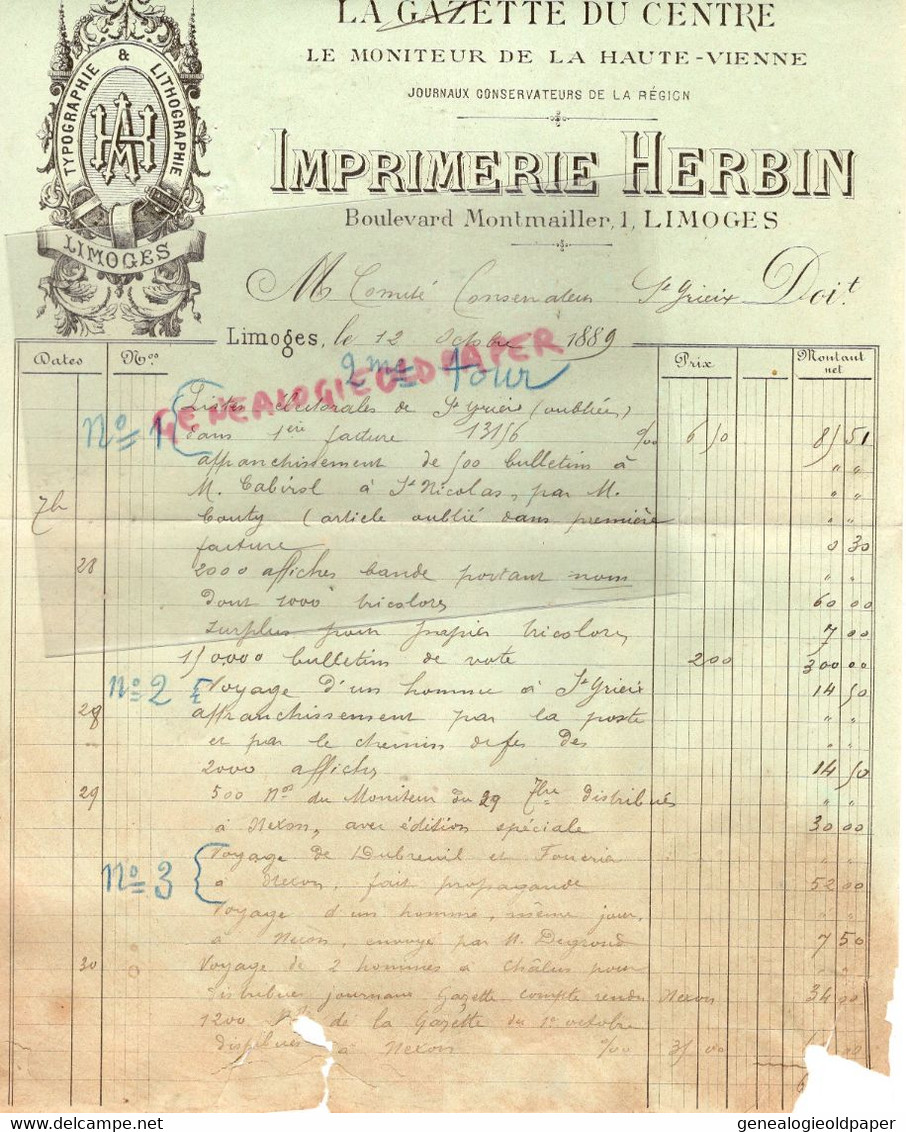 LA GAZETTE DU CENTRE
LE MONITEUR DE LA HAUTE-VIENNE
JOURNAUX CONSERVATEURS DE LA RÉGION
IMPRIMERIE HERBIN
Boulevard Montmailler, 1, LIMOGES
TYPOGRAPHIE & LITHOGRAPHIE
LIMOGES
M Comité Conservateur St Yrieix Doit
Limoges, le 12 Octobre 1889
GENEALOGIEOLDPAPER
Dates Nos Prix Montant net
2me tour
No 1 Listes électorales de St Yrieix (oubliées)
dans 1ère facture 1315/6 %00 6 50 8 51
affranchissement de 500 bulletins à " "
M. Cabirol à St Nicolas, par M. " "
7b Couty (article oublié dans première
facture 0 30
28 2000 affiches bande portant nom " "
dont 1000 tricolores 60 00
surplus pour papier tricolore 7 00
150,000 bulletins de vote 200 300 00
No 2 Voyage d'un homme à St Yrieix 14 50
28 affranchissement par la poste " "
et par le chemin de fer des " "
2000 affiches 14 50
29 500 Nos du Moniteur du 29 7bre distribués " "
à Nexon, avec édition spéciale 30 00
No 3 Voyage de Dubreuil et "
à Nexon, fait propagande 52 00
Voyage d'un homme, même jour, " "
à Nexon, envoyé par M. Degrond 7 50
30 Voyage de 2 hommes à Châlus pour "
distribuer journaux Gazette compte rendu Nexon 34 00
1200 Nos de la Gazette du 1er octobre
distribués à Nexon %00 35 00
genealogieoldpaper
delcampe.net